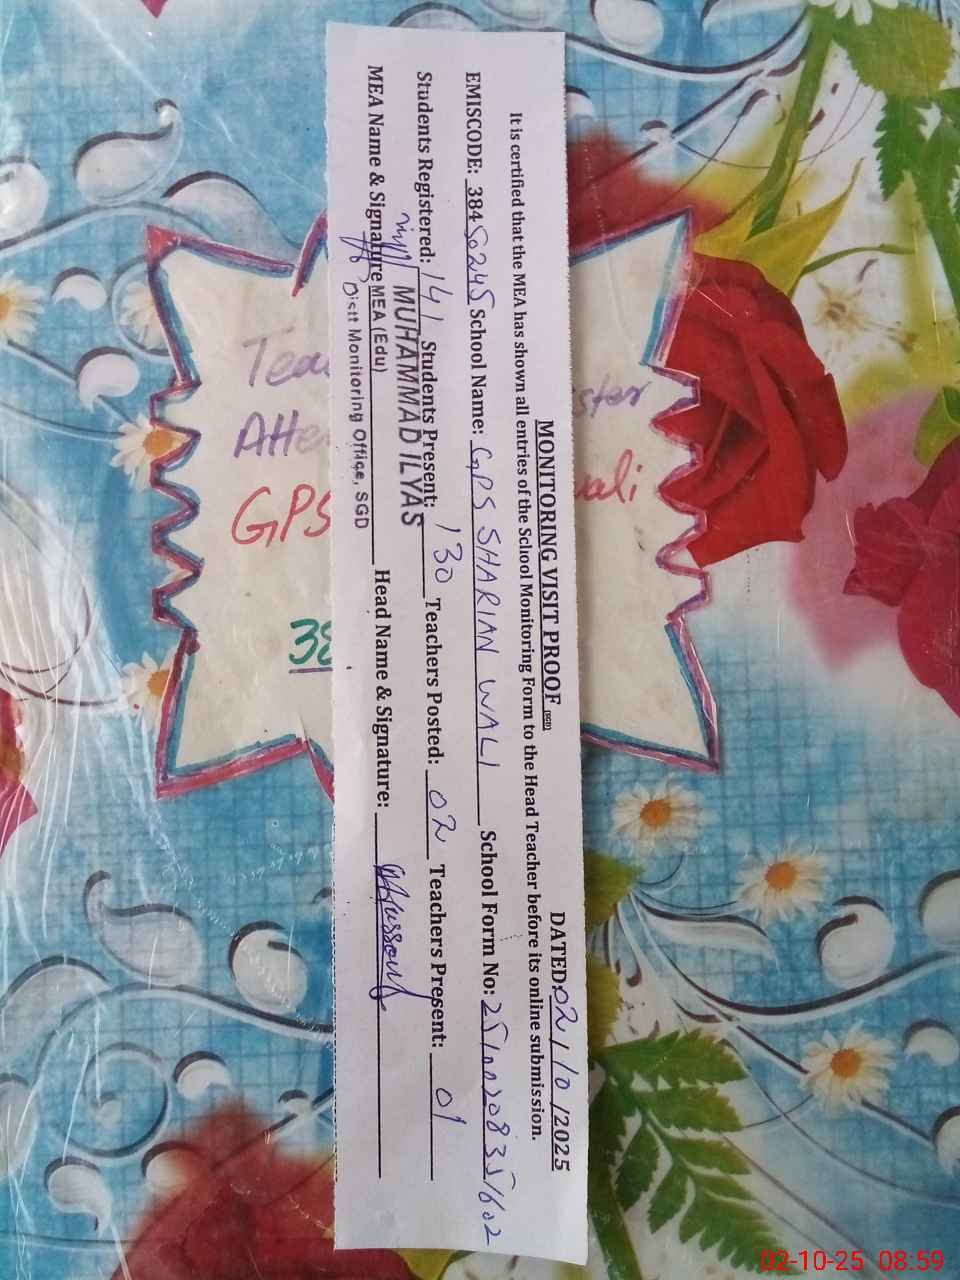 MONITORING VISIT PROOF (SED) DATED: 02/10/2025
It is certified that the MEA has shown all entries of the School Monitoring Form to the Head Teacher before its online submission.
EMISCODE: 38450245 School Name: GPS SHARIAN WALI School Form No:
Students Registered: 141 Students Present: 130 Teachers Posted: 02 Teachers Present: 01
MEA Name & Signature Head Name & Signature:
MUHAMMAD ILYAS
MEA (Edu)
Distt Monitoring Office, SGD
GPS
38
02-10-25 08:59